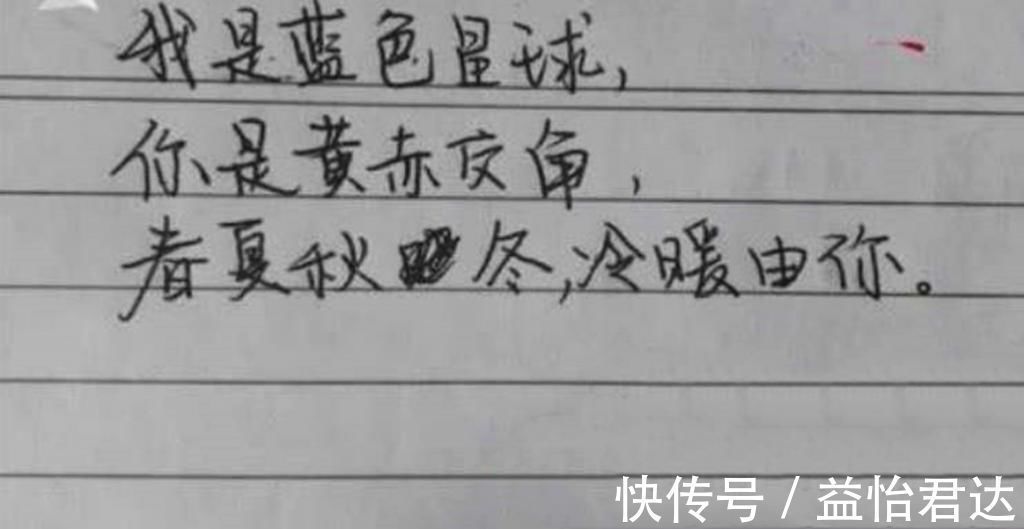 我是蓝色星球，
你是黄赤交角，
春夏秋冬，冷暖由你。
快传号 / 益怡君达